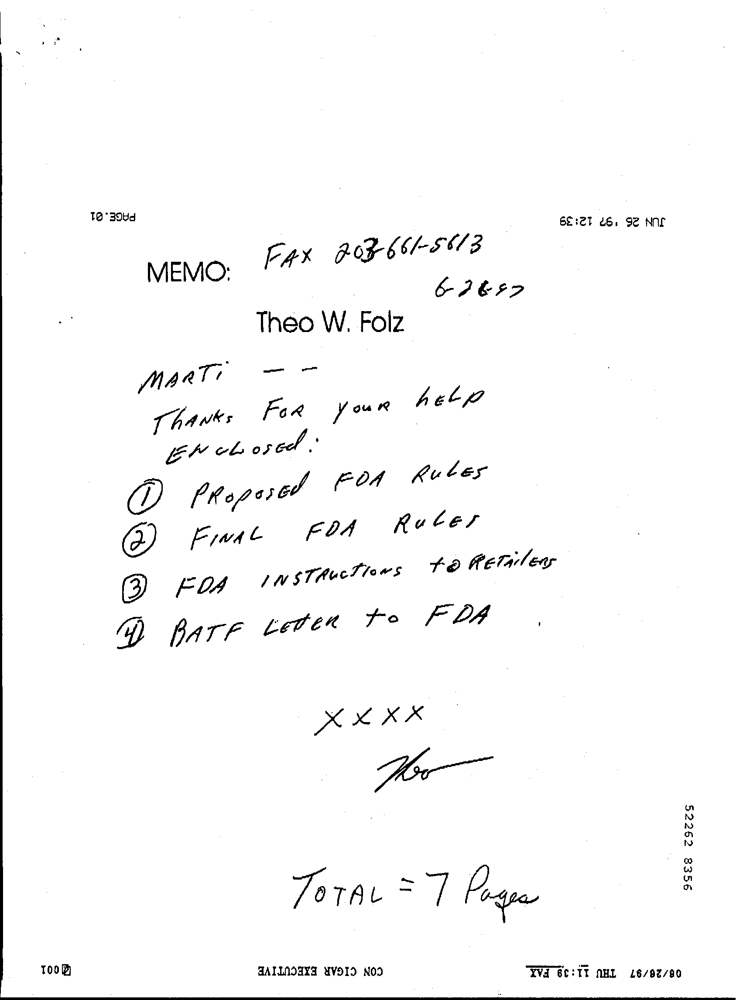 JUN 26 '97 12:39 PAGE.01
MEMO: FAX 203-661-5613
6-26-97
Theo W. Folz
MARTi — —
THANKS FOR your help
ENCLOSED:
① PROPOSED FDA RULES
② FINAL FDA RULES
③ FDA INSTRUCTIONS to RETAilERS
④ BATF LETTER to FDA
XXXX
Theo
TOTAL = 7 Pages
52262 8356
06/26/97 THU 11:39 FAX CON CIGAR EXECUTIVE 001